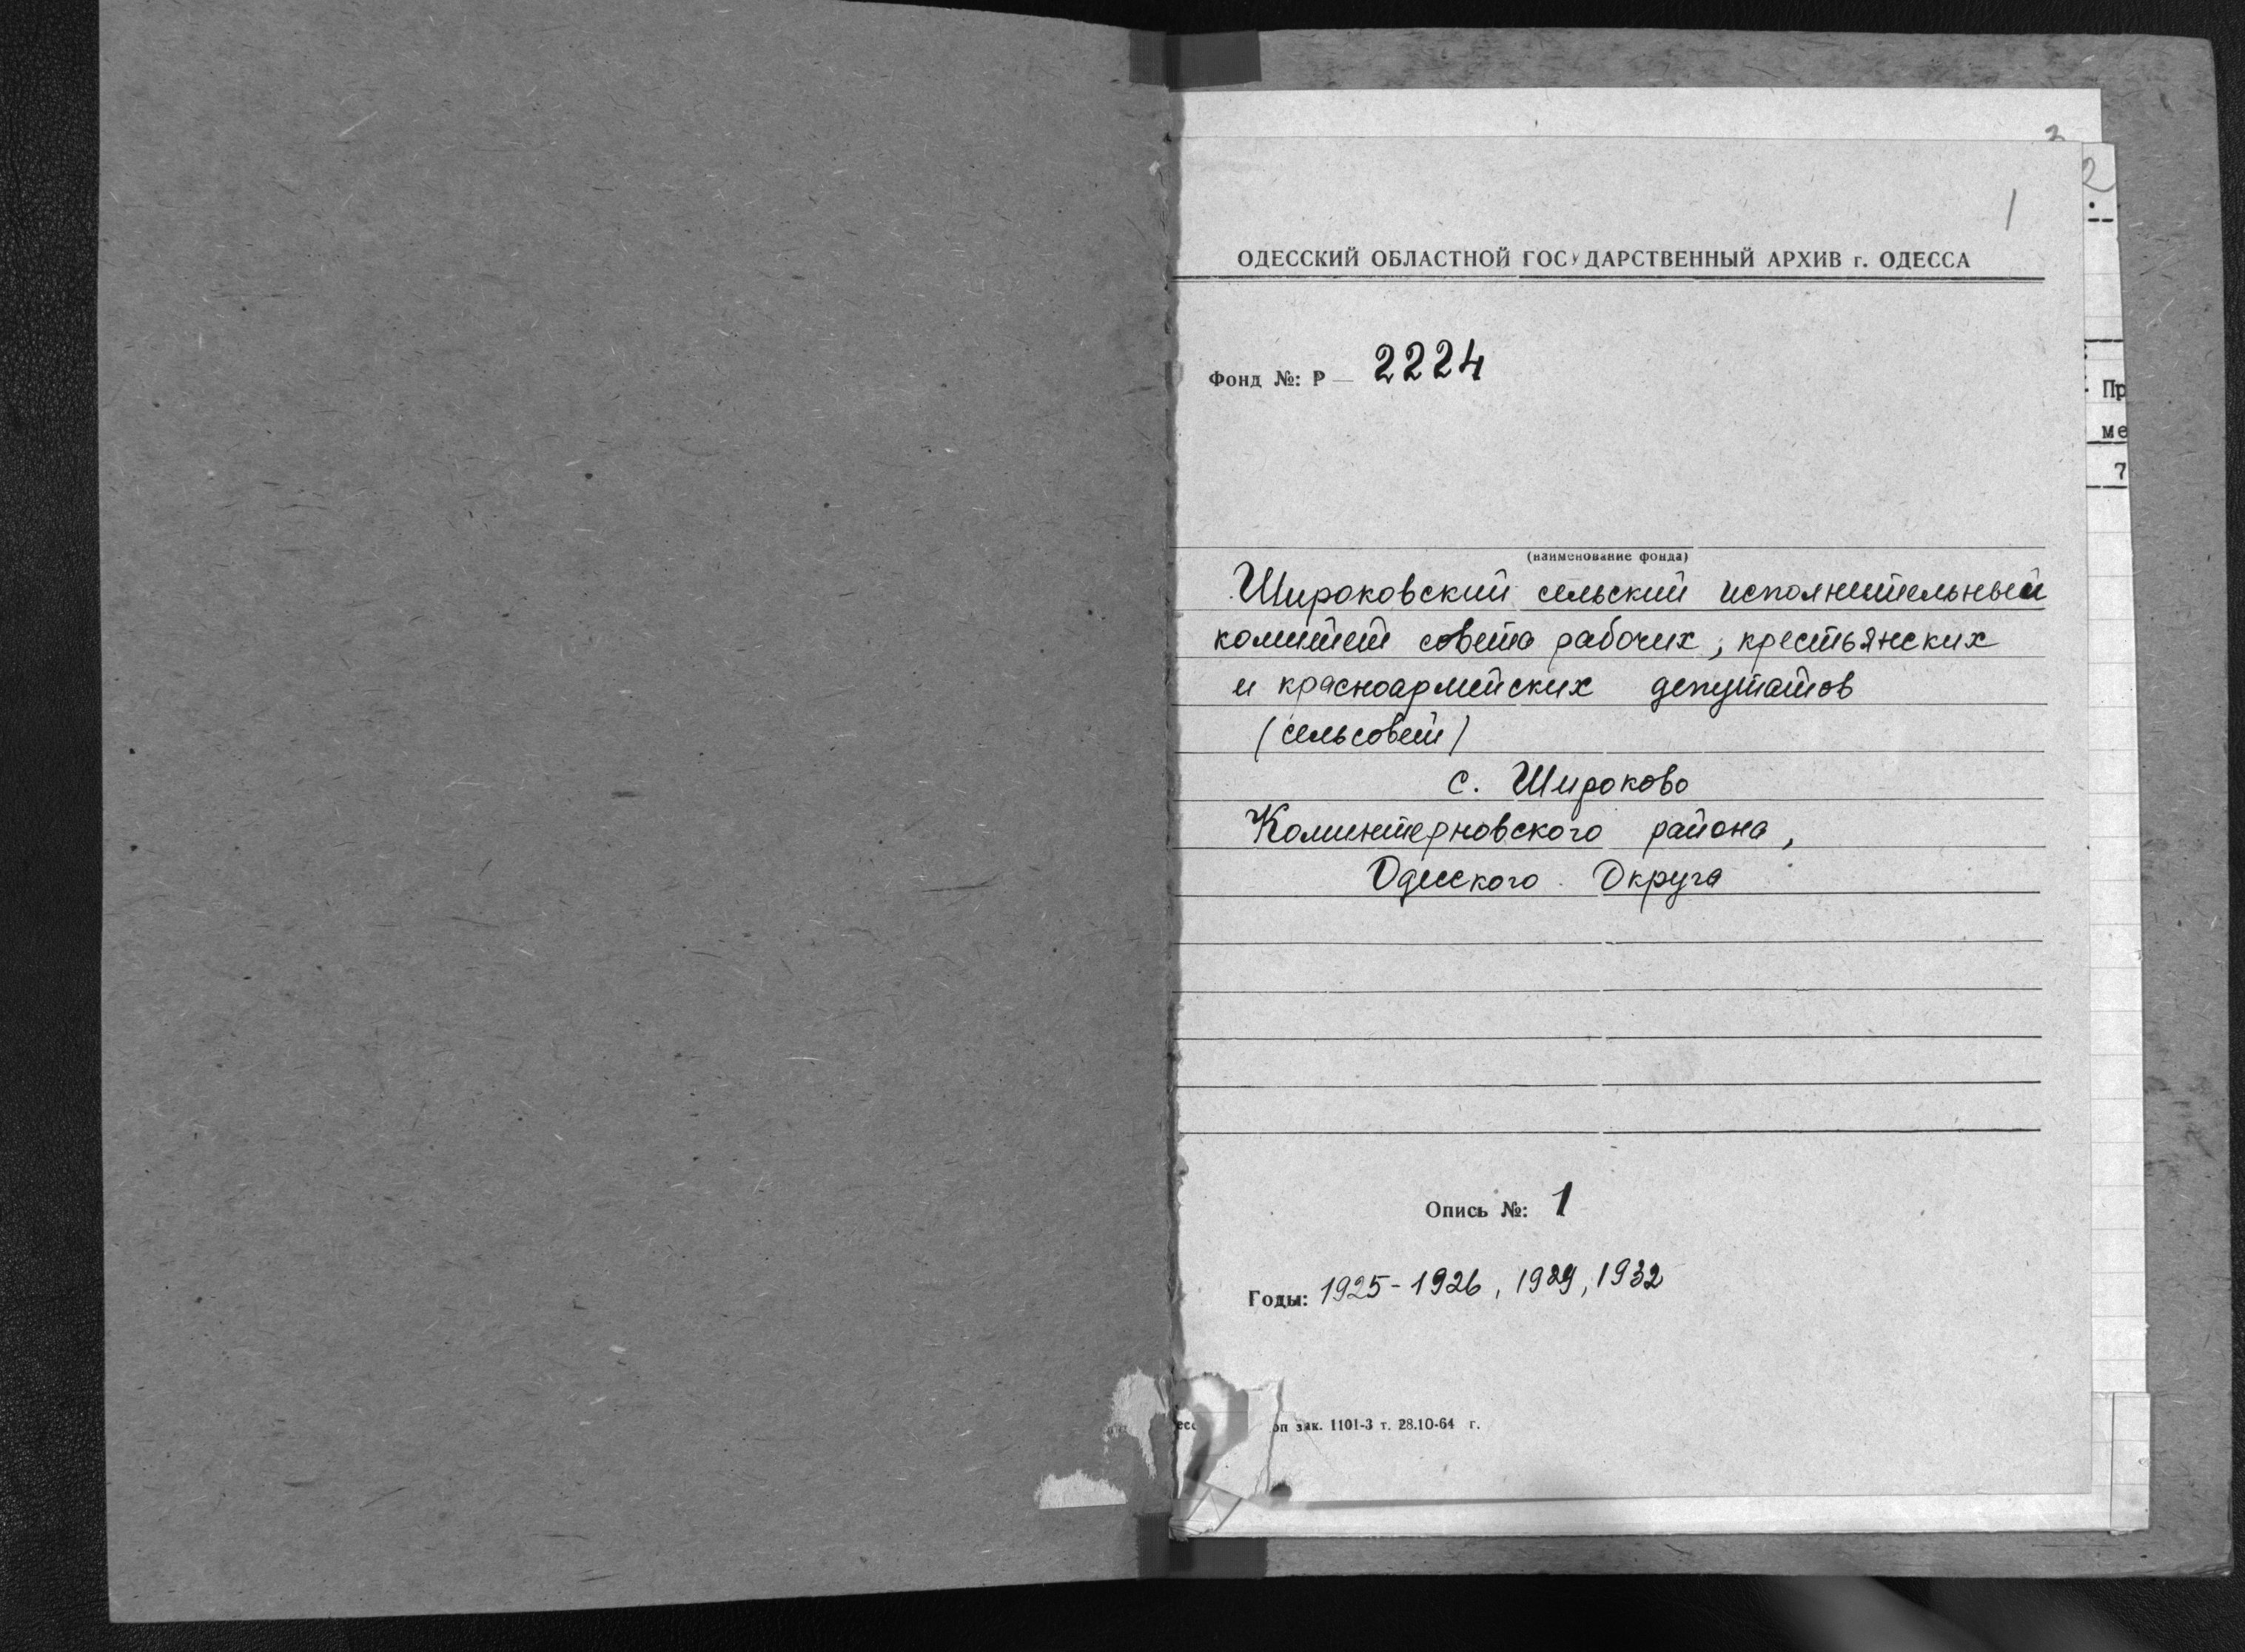 3
2
1
ОДЕССКИЙ ОБЛАСТНОЙ ГОСУДАРСТВЕННЫЙ АРХИВ г. ОДЕССА
Фонд №: Р — 2224
Пр
ме
7
(наименование фонда)
Широковский сельский исполнительный
комитет совета рабочих, крестьянских
и красноармейских депутатов
(сельсовет)
с. Широково
Коминтерновского района,
Одесского Округа
Опись №: 1
Годы: 1925-1926, 1929, 1932
оп зак. 1101-3 т. 28.10-64 г.